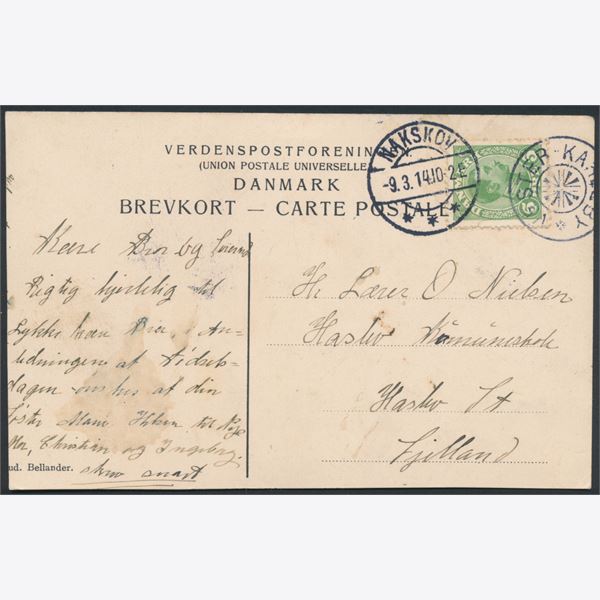 VERDENSPOSTFORENIN
(UNION POSTALE UNIVERSELLE
DANMARK
BREVKORT — CARTE POSTALE
NAKSKOV
-9.3.14 10-2.E
STER-KARLEBY
5
Kære Bror og
Rigtig hjertelig til
Lykke kære Bror, i An-
ledningen af Fødsels-
dagen ønskes af din
Søster Marie Hilsen til
Mor, Christian og Ingeborg.
ud. Bellander. skriv snart
Hr Lærer O Nielsen
Haslev Komuneskole
Haslev St
Sjælland